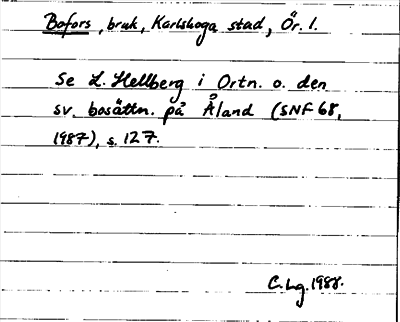 Bofors, bruk, Karlskoga stad, Ör. l.
Se L. Hellberg i Ortn. o. den
sv. bosättn. på Åland (SNF 68,
1987), s. 127.
C. Lg. 1988.